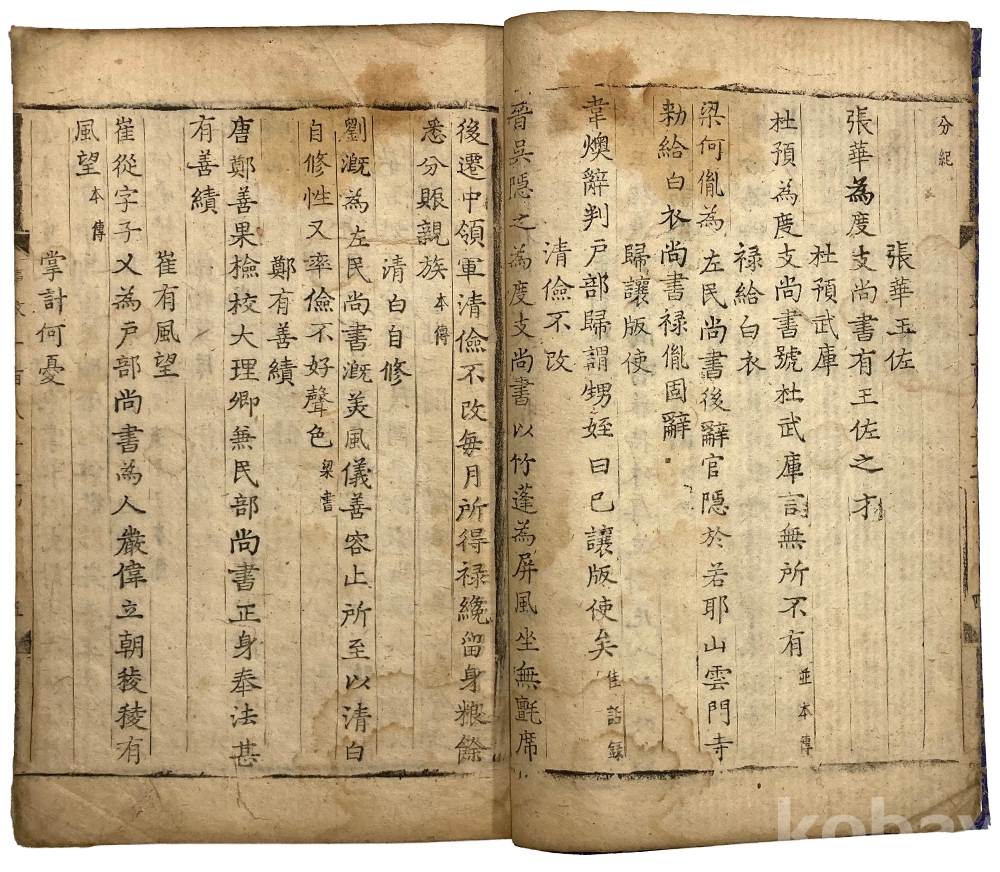 分紀
張華王佐
張華為度支尚書有王佐之才
杜預武庫
杜預為度支尚書號杜武庫言無所不有 並本傳
祿給白衣
梁何胤為左民尚書後辭官隱於若耶山雲門寺
勑給白衣尚書祿胤固辭
歸讓版使
韋煥辭判戶部歸謂甥姪曰已讓版使矣 佳話錄
清儉不改
晉吳隱之為度支尚書以竹蓬為屏風坐無氈席
後遷中領軍清儉不改每月所得祿纔留身粮餘
悉分賑親族 本傳
清白自修
劉溉為左民尚書溉美風儀善容止所至以清白
自修性又率儉不好聲色 梁書
鄭有善績
唐鄭善果檢校大理卿兼民部尚書正身奉法甚
有善績
崔有風望
崔從字子乂為戶部尚書為人嚴偉立朝稜稜有
風望 本傳
掌計何憂
kobay